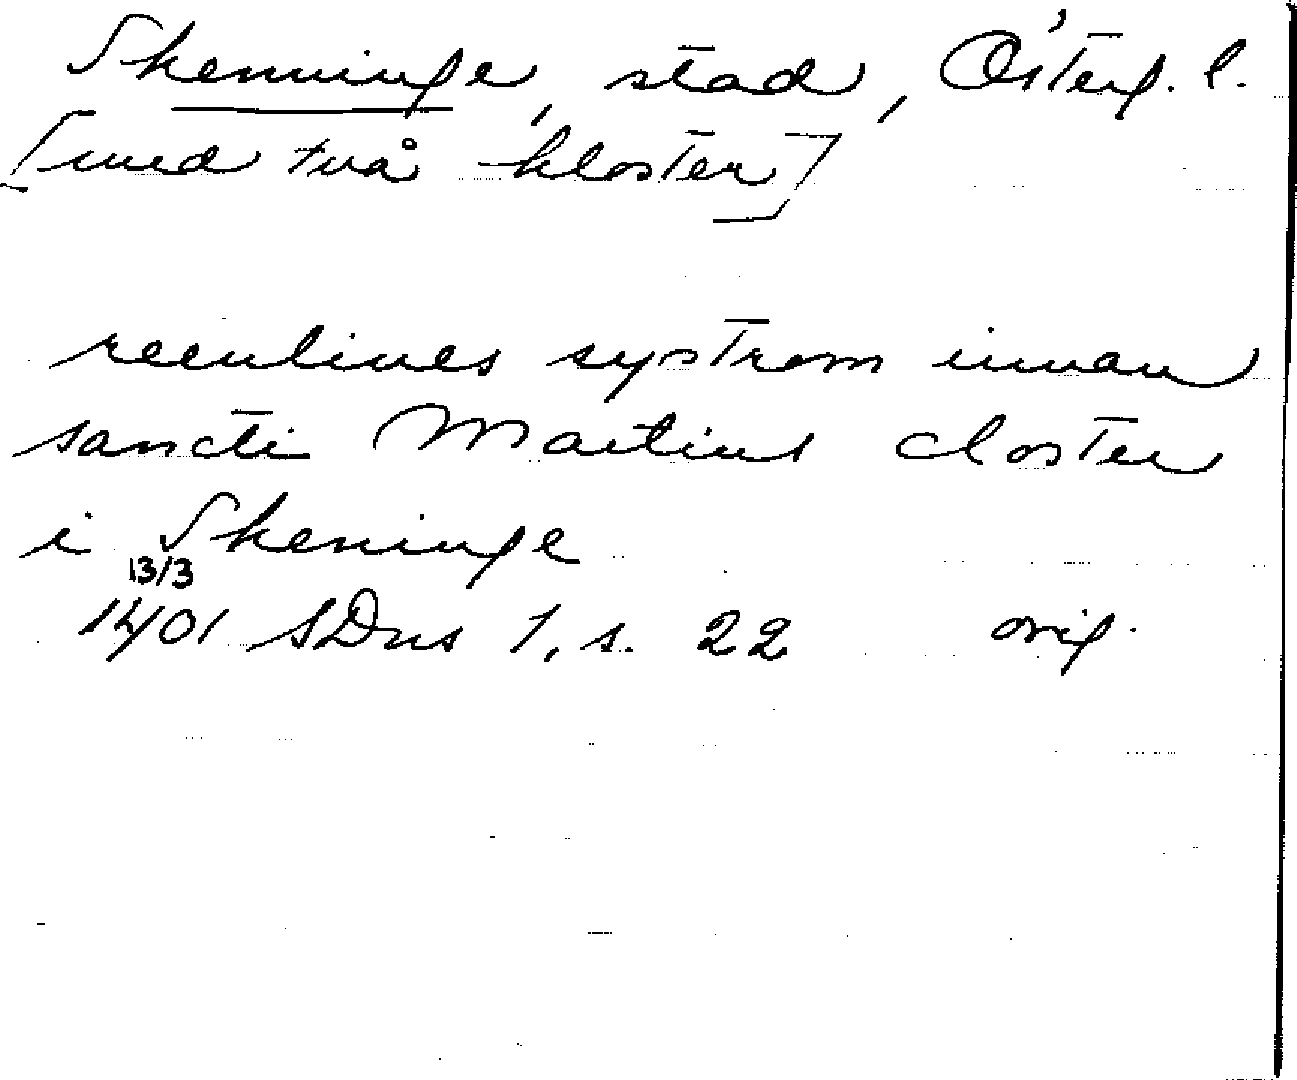 Skenninge, stad, Österg. l.
[med två kloster]
reenlines systrom innan
sancti Martins closter
i Skeninge
13/3
1401 SDns 1, s. 22 orig.